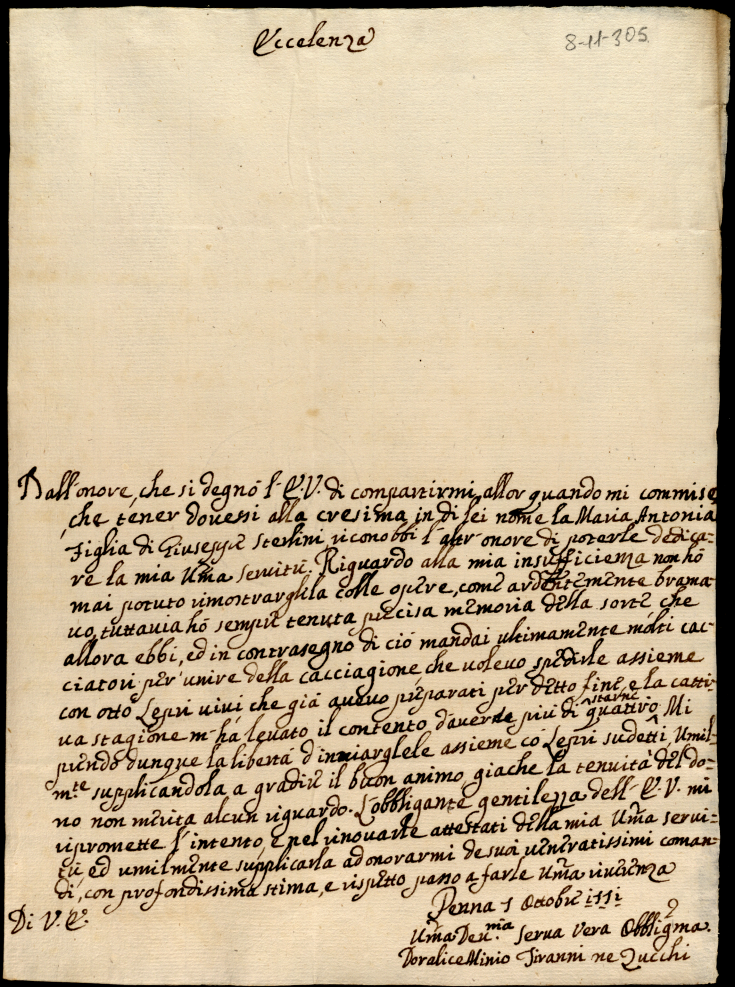 Eccelenza
8-11-305
Dall'onore, che si degnò l'E.V. di compartirmi allor quando mi commise
che tener dovessi alla cresima in di lei nome la Maria Antonia
Figlia di Giuseppe Sterlini riconobbi l'altr'onore di poterle dedica-
re la mia Uma servitù. Riguardo alla mia insufficienza non hò
mai potuto rimostrargliela colle opere, come ardentemente brama-
vo, tuttavia hò sempre tenuta precisa memoria della sorte che
allora ebbi, ed in contrasegno di ciò mandai ultimamente molti cac-
ciatori per unire della cacciagione che volevo spedirle assieme
con otto Lepri vivi che già avevo preparati per detto fine e la catti-
va stagione m'hà levato il contento d'averne più di quattro starne. Mi
prendo dunque la libertà d'inviarglele assieme co' Lepri sudetti Umil-
mte supplicandola a gradire il buon animo, giache la tenuità del do-
no non merita alcun riguardo. L'obbligante gentilezza dell'E.V. mi
ripromette l'intento, e nel rinovarle attestati della mia Uma servi-
tù ed umilmente supplicarla ad onorarmi de suoi veneratissimi coman-
di, con profondissima stima, e rispetto passo a farle Uma riverenza
Penna 1 Ottobre 1551
Di V.E.
Uma Dev.ma Serva Vera Obbligma
Doralice Minio Tiranni ne Zucchi